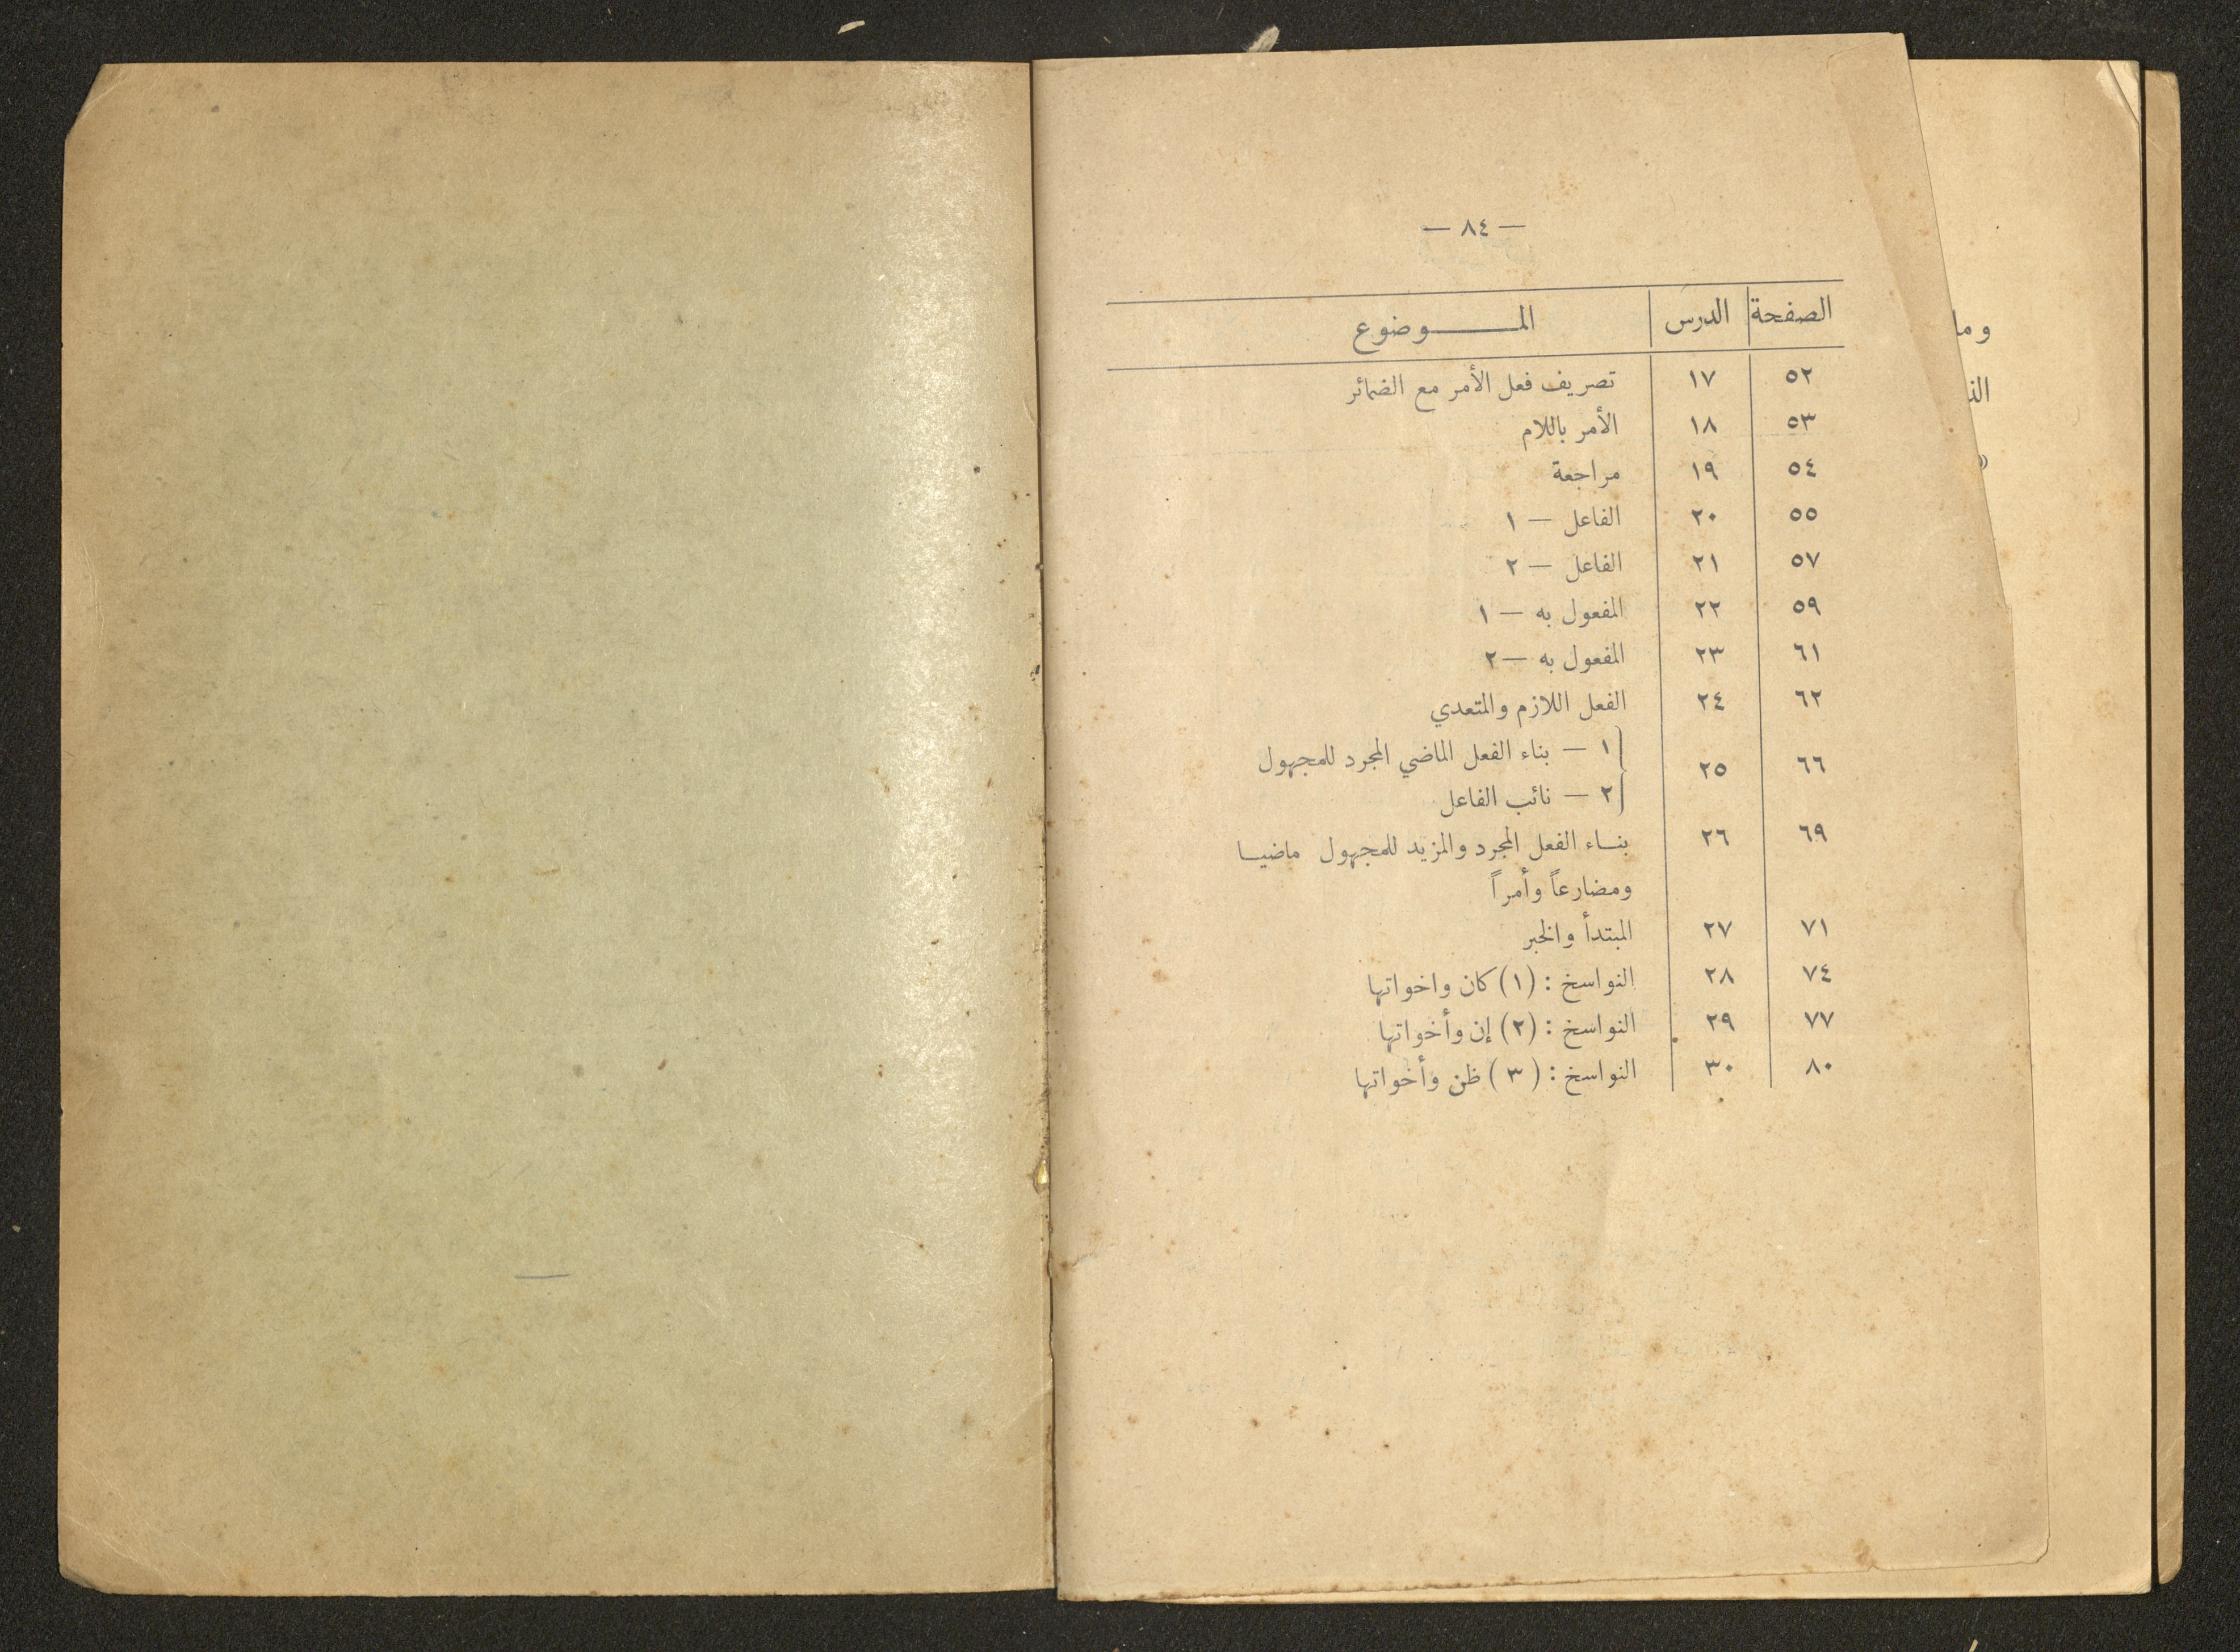 — ٨٤ —
الصفحة الدرس الموضوع
٥٢ ١٧ تصريف فعل الأمر مع الضمائر
٥٣ ١٨ الأمر باللام
٥٤ ١٩ مراجعة
٥٥ ٢٠ الفاعل — ١
٥٧ ٢١ الفاعل — ٢
٥٩ ٢٢ المفعول به — ١
٦١ ٢٣ المفعول به — ٢
٦٢ ٢٤ الفعل اللازم والمتعدي
٦٦ ٢٥ ١ — بناء الفعل الماضي المجرد للمجهول
٢ — نائب الفاعل
٦٩ ٢٦ بناء الفعل المجرد والمزيد للمجهول ماضيا
ومضارعاً وأمراً
٧١ ٢٧ المبتدأ والخبر
٧٤ ٢٨ النواسخ : (١) كان واخواتها
٧٧ ٢٩ النواسخ : (٢) إن وأخواتها
٨٠ ٣٠ النواسخ : (٣) ظن وأخواتها
وما